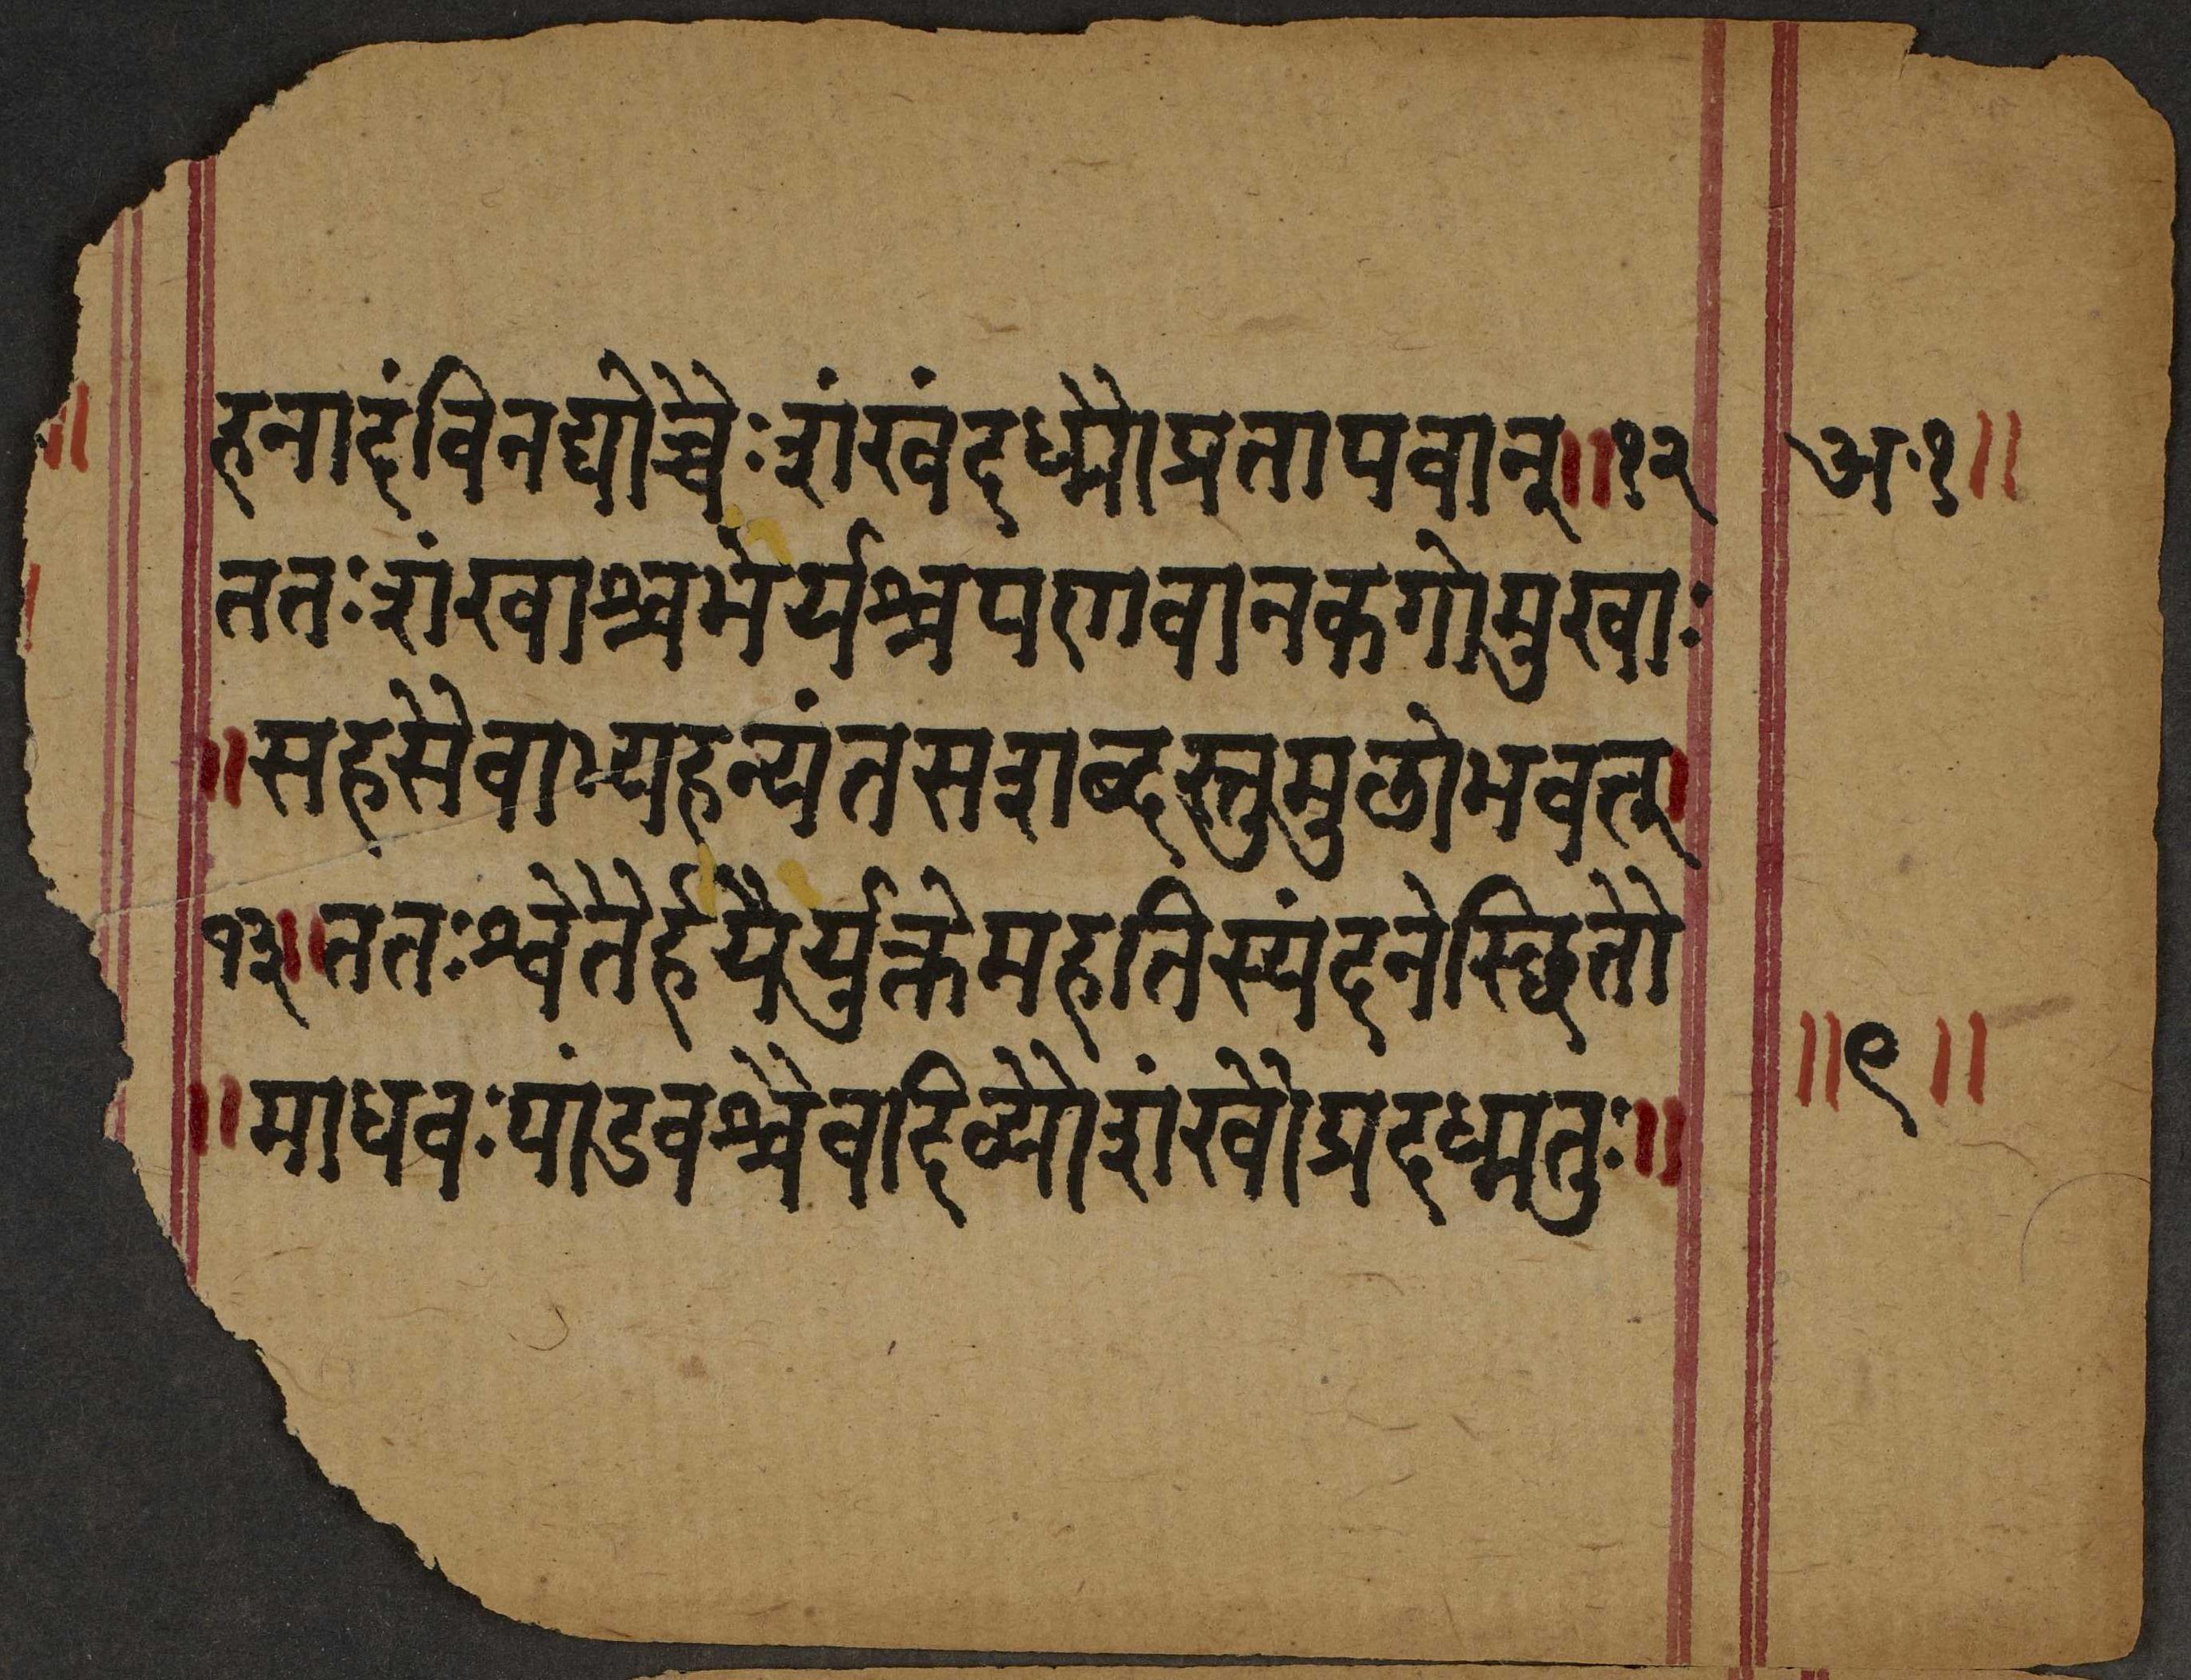 हनादंविनद्योच्चैःशंखंदध्मौप्रतापवान्॥१२ अ.१॥
ततःशंखाश्चभेर्यश्चपणवानकगोमुखाः
॥सहसैवाभ्यहन्यंतसशब्दस्तुमुळोभवत्त्।
१३॥ततःश्वेतैर्हयैर्युक्तेमहतिस्यंदनेस्छितौ
॥९॥
॥माधवःपांडवश्चैवदिव्यौशंखौप्रदध्मतुः॥